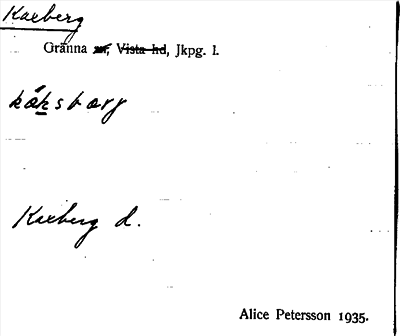 Kaxberg
Gränna sn, Vista hd, Jkpg. l.
kák̲sbærj
Kaxberg d.
Alice Petersson 1935.